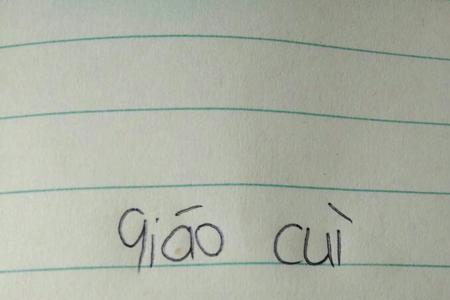 giáo cuì